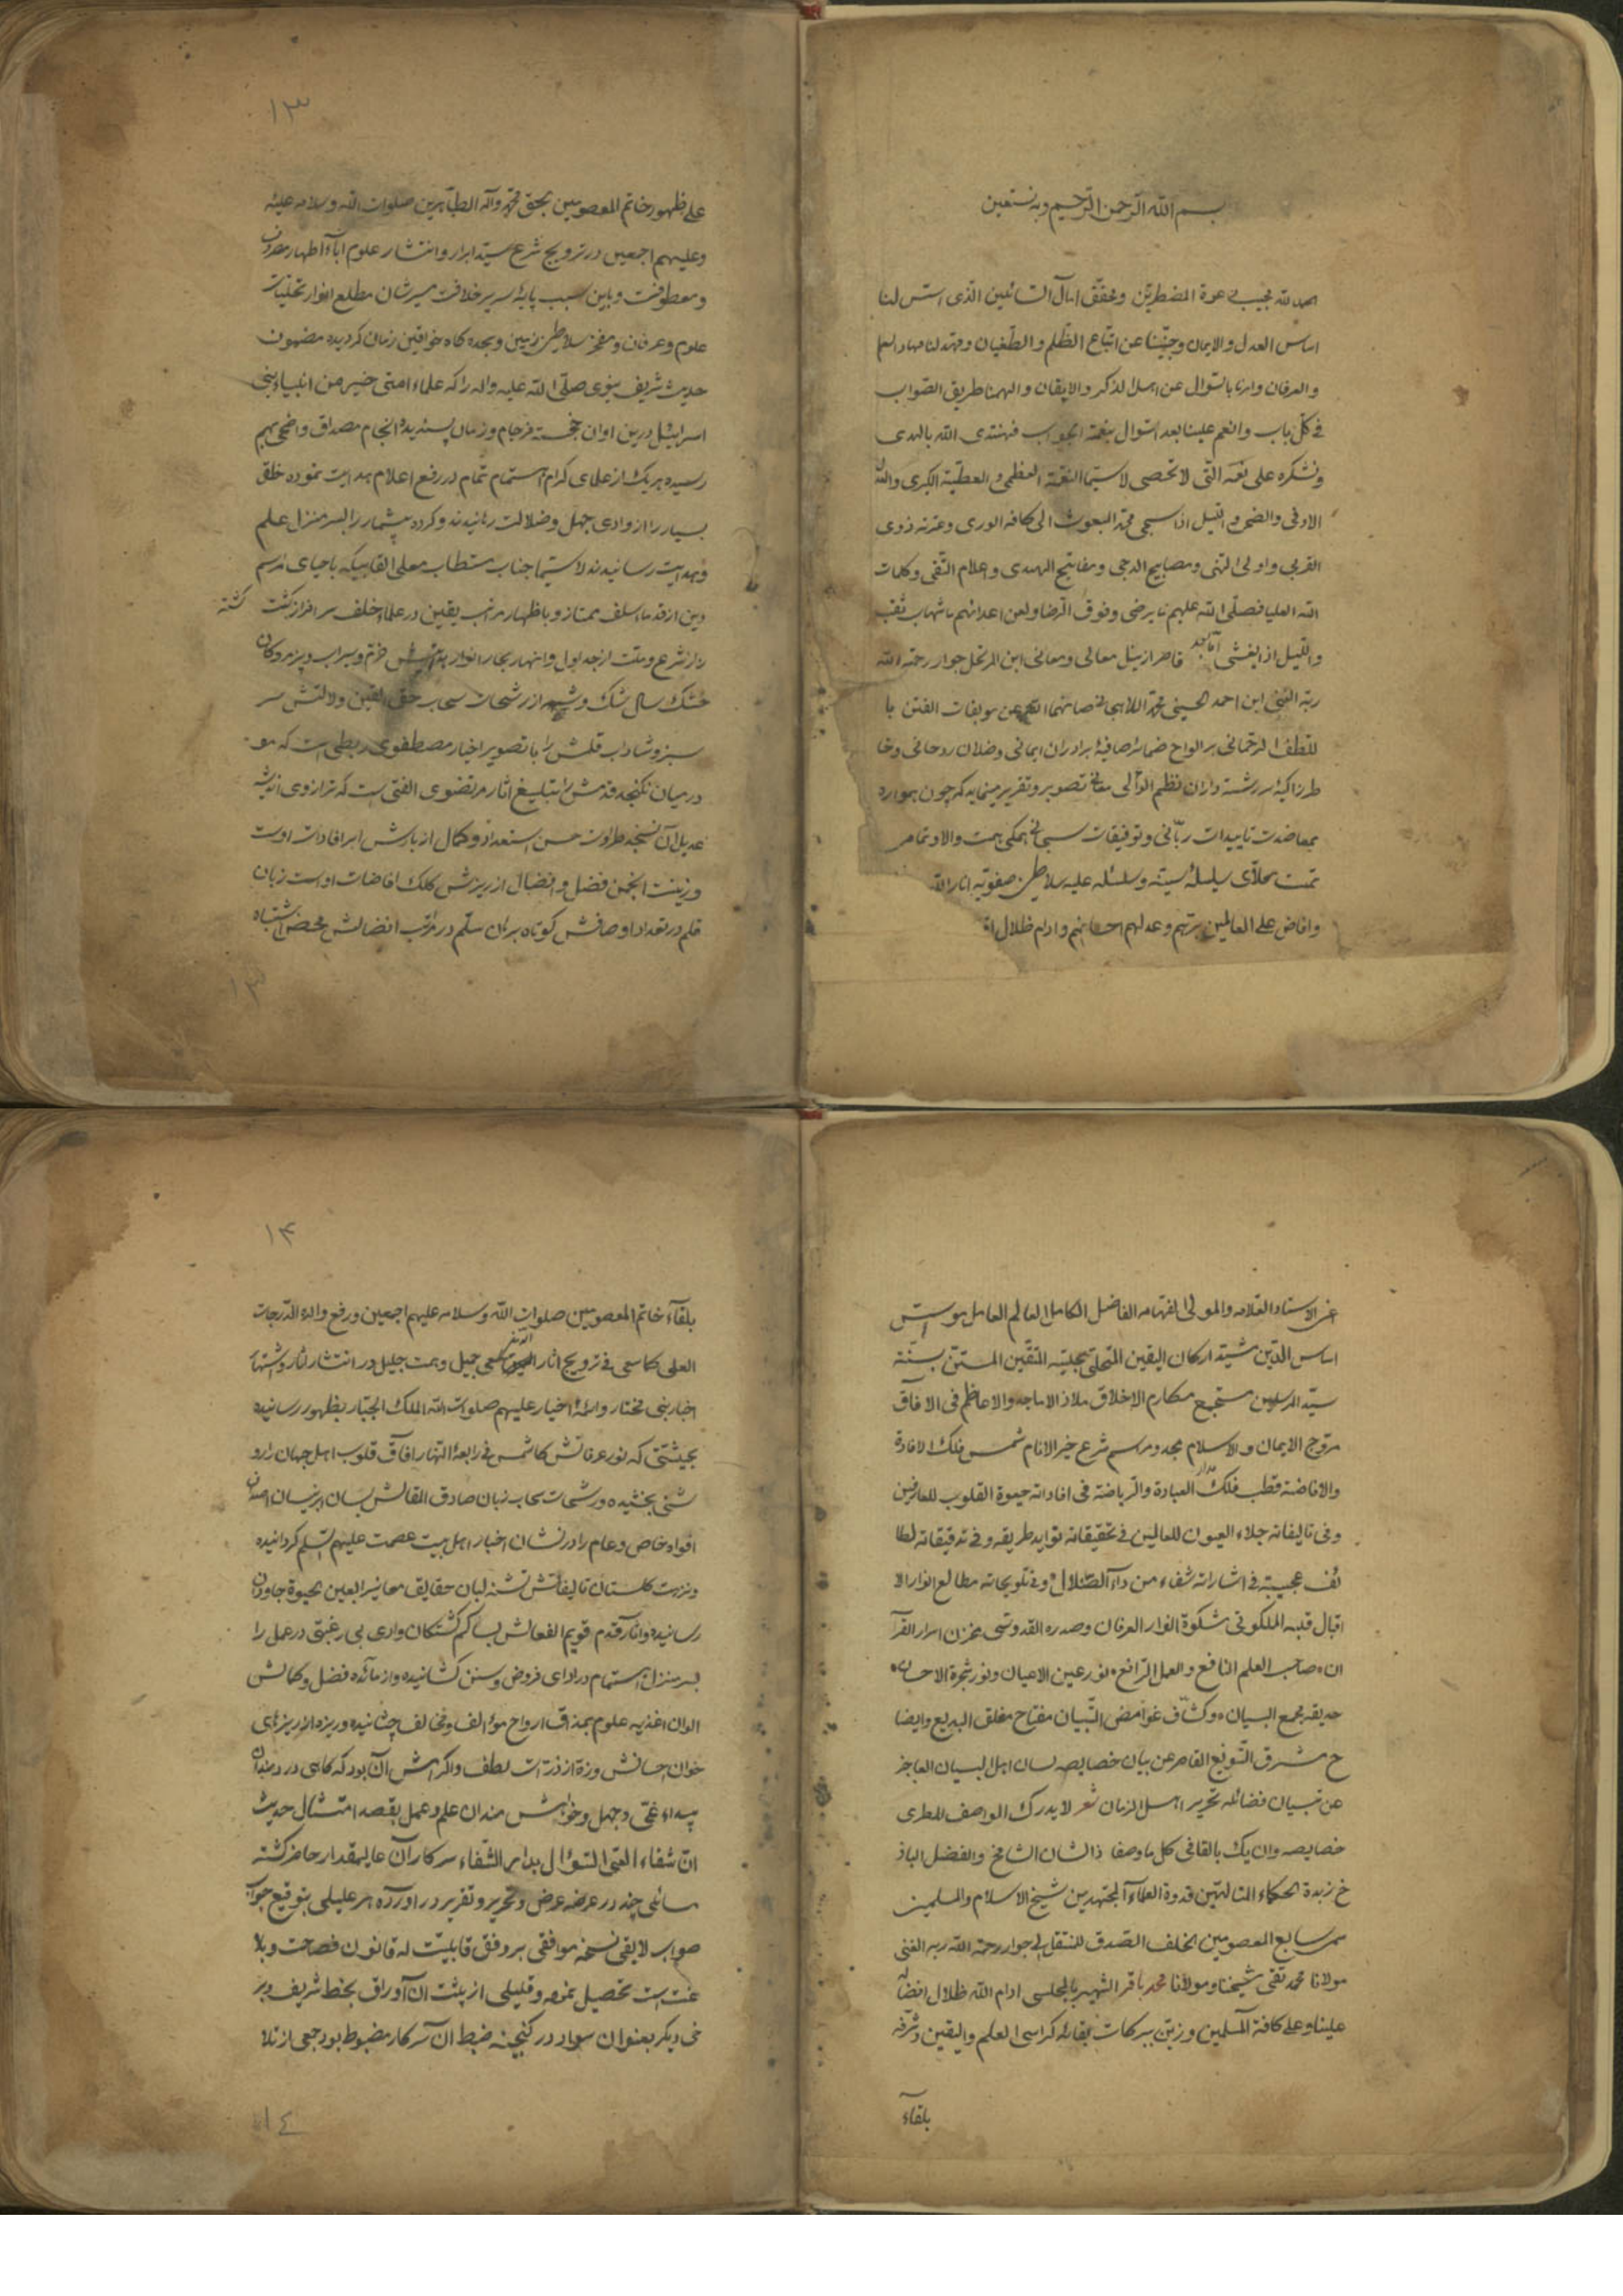 بسم الله الرحمن الرحیم وبه نستعین
الحمد لله مجیب دعوة المضطرین ومحقق امال السائلین الذی اسس لنا
اساس العدل والایمان وجنبنا عن اتباع الظلم والطغیان ومهد لنا مهاد العلم
والعرفان وامرنا بالسوال عن اهل الذکر والایقان والهمنا طریق الصواب
فی کل باب وانعم علینا بعد السوال بنعمة الجواب فنهتدی الله بالهدی
ونشکره علی نعمه التی لا تحصی لا سیما النعمة العظمی والعطیة الکبری
الاوفی والضحی واللیل اذا سجی محمد المبعوث الی کافة الوری وعترته ذوی
القربی واولی النهی ومصابیح الدجی ومفاتیح الهدی واعلام التقی وکلمات
الله العلیا فصلی الله علیهم ما یرضی وفوق الرضا ولعن اعدائهم ما شهاب ثقب
واللیل اذا یغشی اما بعد قاصر از نیل معالی ومعانی ابن المرتحل جوار رحمة الله
ربه الغنی ابن احمد الحسینی محمد اللاهیجانی صانهما الله عن موبقات الفتن با
للطف الرحمانی بر الواح ضمائر صافیۀ برادران ایمانی وخلان روحانی وخا
طر زاکیۀ سررشته داران نظم اللآلی تصویر وتقریر مینماید که چون همواره
بمعاضدت تاییدات ربانی وتوفیقات سبحانی همکی همت والا وتمامی
نهمت سلسلۀ سنیه وسلسلۀ علیه سلاطین صفویه انار الله
وافاض علی العالمین برهم وعدلهم احسانهم وادام ظلال
۱۳
علی ظهور خاتم المعصومین بحق محمد وآله الطاهرین صلوات الله وسلامه علیه
وعلیهم اجمعین در ترویج شرع سید ابرار وانتشار علوم آباء اطهار مصروف
ومعطوفست وباین سبب پایۀ سریر خلافت مسیرشان مطلع انوار تجلیات
علوم وعرفان ومفخر سلاطین زمین وسجده کاه خواقین زمان کردیده مضمون
حدیث شریف نبوی صلی الله علیه واله را که علماء امتی خیر من انبیاء بنی
اسرائیل درین اوان خجسته فرجام وزمان پسندیده انجام مصداق واضحی بهم
رسیده هر یک از علمای کرام اهتمام تمام در رفع اعلام هدایت نموده خلق
بسیار را از وادی جهل وضلالت رهانیدند وکروه بیشمار را بسر منزل علم
وهدایت رسانیدند لا سیما جناب مستطاب معلی القابیکه باحیای مراسم
دین از قدماء سلف ممتاز وباظهار مراتب یقین در علماء خلف سرافراز کشت کشته
زار شرع وملت از جداول وانهار بحار انوار خرم وسیراب وپژمردکان
خشک سال شک وشبهه از رشحات سحاب حق الیقین ودلالتش سر
سبز وشاداب قلمش را با تصویر اخبار مصطفوی ربطی است که مو
در میان نکنجد قدمش را بتبلیغ اثار مرتضوی الفتی است که ترازوی اندیشه
عدیل آن نسنجد طراوت چمن استعداد وکمال از بارش ابر افادات اوست
وزینت انجمن فضل وافضال از ریزش کلک افاضات اوست زبان
قلم در تعداد اوصافش کوتاه بردن سلم در مراتب افضالش محض اشتباه
۱۳
عنی الاستاد العلامه والمولی الفهامه الفاضل الکامل العالم العامل موسس
اساس الدین مشید ارکان الیقین المتحلی بحلیة المتقین المستن بسنة
سید المرسلین مستجمع مکارم الاخلاق ملاذ الاماجد والاعاظم فی الافاق
مروج الایمان والاسلام مجدد مراسم شرع خیر الانام شمس فلک الافادة
والافاضة قطب مدار فلک العبادة والریاضة فی افاداته حیوة القلوب للعارفین
وفی تالیفاته جلاء العیون للعالمین فی تحقیقاته فواید طریفه وفی تدقیقاته لطا
ئف عجیبة فی اشاراته شفاء من داء الضلال وفی تلویحاته مطالع انوار الا
اقبال قلبه الملکوتی مشکوة انوار العرفان وصدره القدوسی مخزن اسرار القرآ
ان صاحب العلم النافع والعمل الرافع نور عین الاعیان ونور شجرة الاحسان
حدیقه مجمع البیان وکشاف غوامض التبیان مفتاح مغلق البدیع وایضا
ح مشرق التوفیع القاصر عن بیان خصایصه لسان اهل البیان العاجز
عن تبیان فضائله تحریر اهل الزمان شعر لا یدرک الواصف المطری
خصایصه وان یک بالقا فی کل ما وصفا ذا الشان الشامخ والفضل الباذ
خ زبدة الحکماء المتالهین قدوة العلماء المجتهدین شیخ الاسلام والمسلمین
سمی سابع المعصومین الخلف الصدق للمنتقل الی جوار رحمة الله ربه الغنی
مولانا محمد تقی شیخنا ومولانا محمد باقر الشهیر بالمجلسی ادام الله ظلال افضاله
علینا وعلی کافة المسلمین وزین ببرکات بقائه کراسی العلم والیقین وشرفه
بلقاء
۱۴
بلقاء خاتم المعصومین صلوات الله وسلامه علیهم اجمعین ورفع والده الدرجات
العلی کما سعی فی ترویج اثار سعی جمیل وهمت جلیل در انتشار اثار واشتهار
اخبار نبی مختار وائمۀ اخیار علیهم صلوات الله الملک الجبار بظهور رسانیده
بحیثیتی که نور عرفانش کالشمس فی رابعة النهار آفاق قلوب اهل جهان را رو
شنی بخشیده ورشحات سحاب زبان صادق المقالش بسان ابر نیسان اصداف
افواه خاص وعام را درفشان اخبار اهل بیت عصمت علیهم السلام کردانیده
ونزهت کلستان تالیفاتش تشنه لبان حقایق معانی را بعین الحیوة جاودان
رسانیده وآثار قدم قویم افعالش بسا کم کشتکان وادی بی رغبتی در عمل را
بسر منزل اهتمام در ادای فروض وسنن کشانیده واز مائده فضل وکمالش
الوان اغذیه علوم بمذاق ارواح مؤالف ومخالف چشانیده وریزه از ریزهای
خوان احسانش وذرۀ از ذرات لطف واکرامش آن بود که کاهی دردمندان
بیداء غی وجهل وخواهش مندان علم وعمل بقصد امتثال حدیث
ان شفاء العی السؤال بدار الشفاء سرکار آن عالیمقدار حاضر کشته
مسائلی چند در عرضه عرض وتحریر وتقریر در آورده هر علیلی بتوقیع جواب
صواب لایقی نسخه موافقی بر وفق قابلیت له قانون فصاحت وبلا
غت است تحصیل نموه وقلیلی از پشت آن اوراق بخط شریف وبر
خی دیکر بعنوان سواد در کنجینه ضبط آن سرکار مضبوط بود جمعی از تلا
۱۴